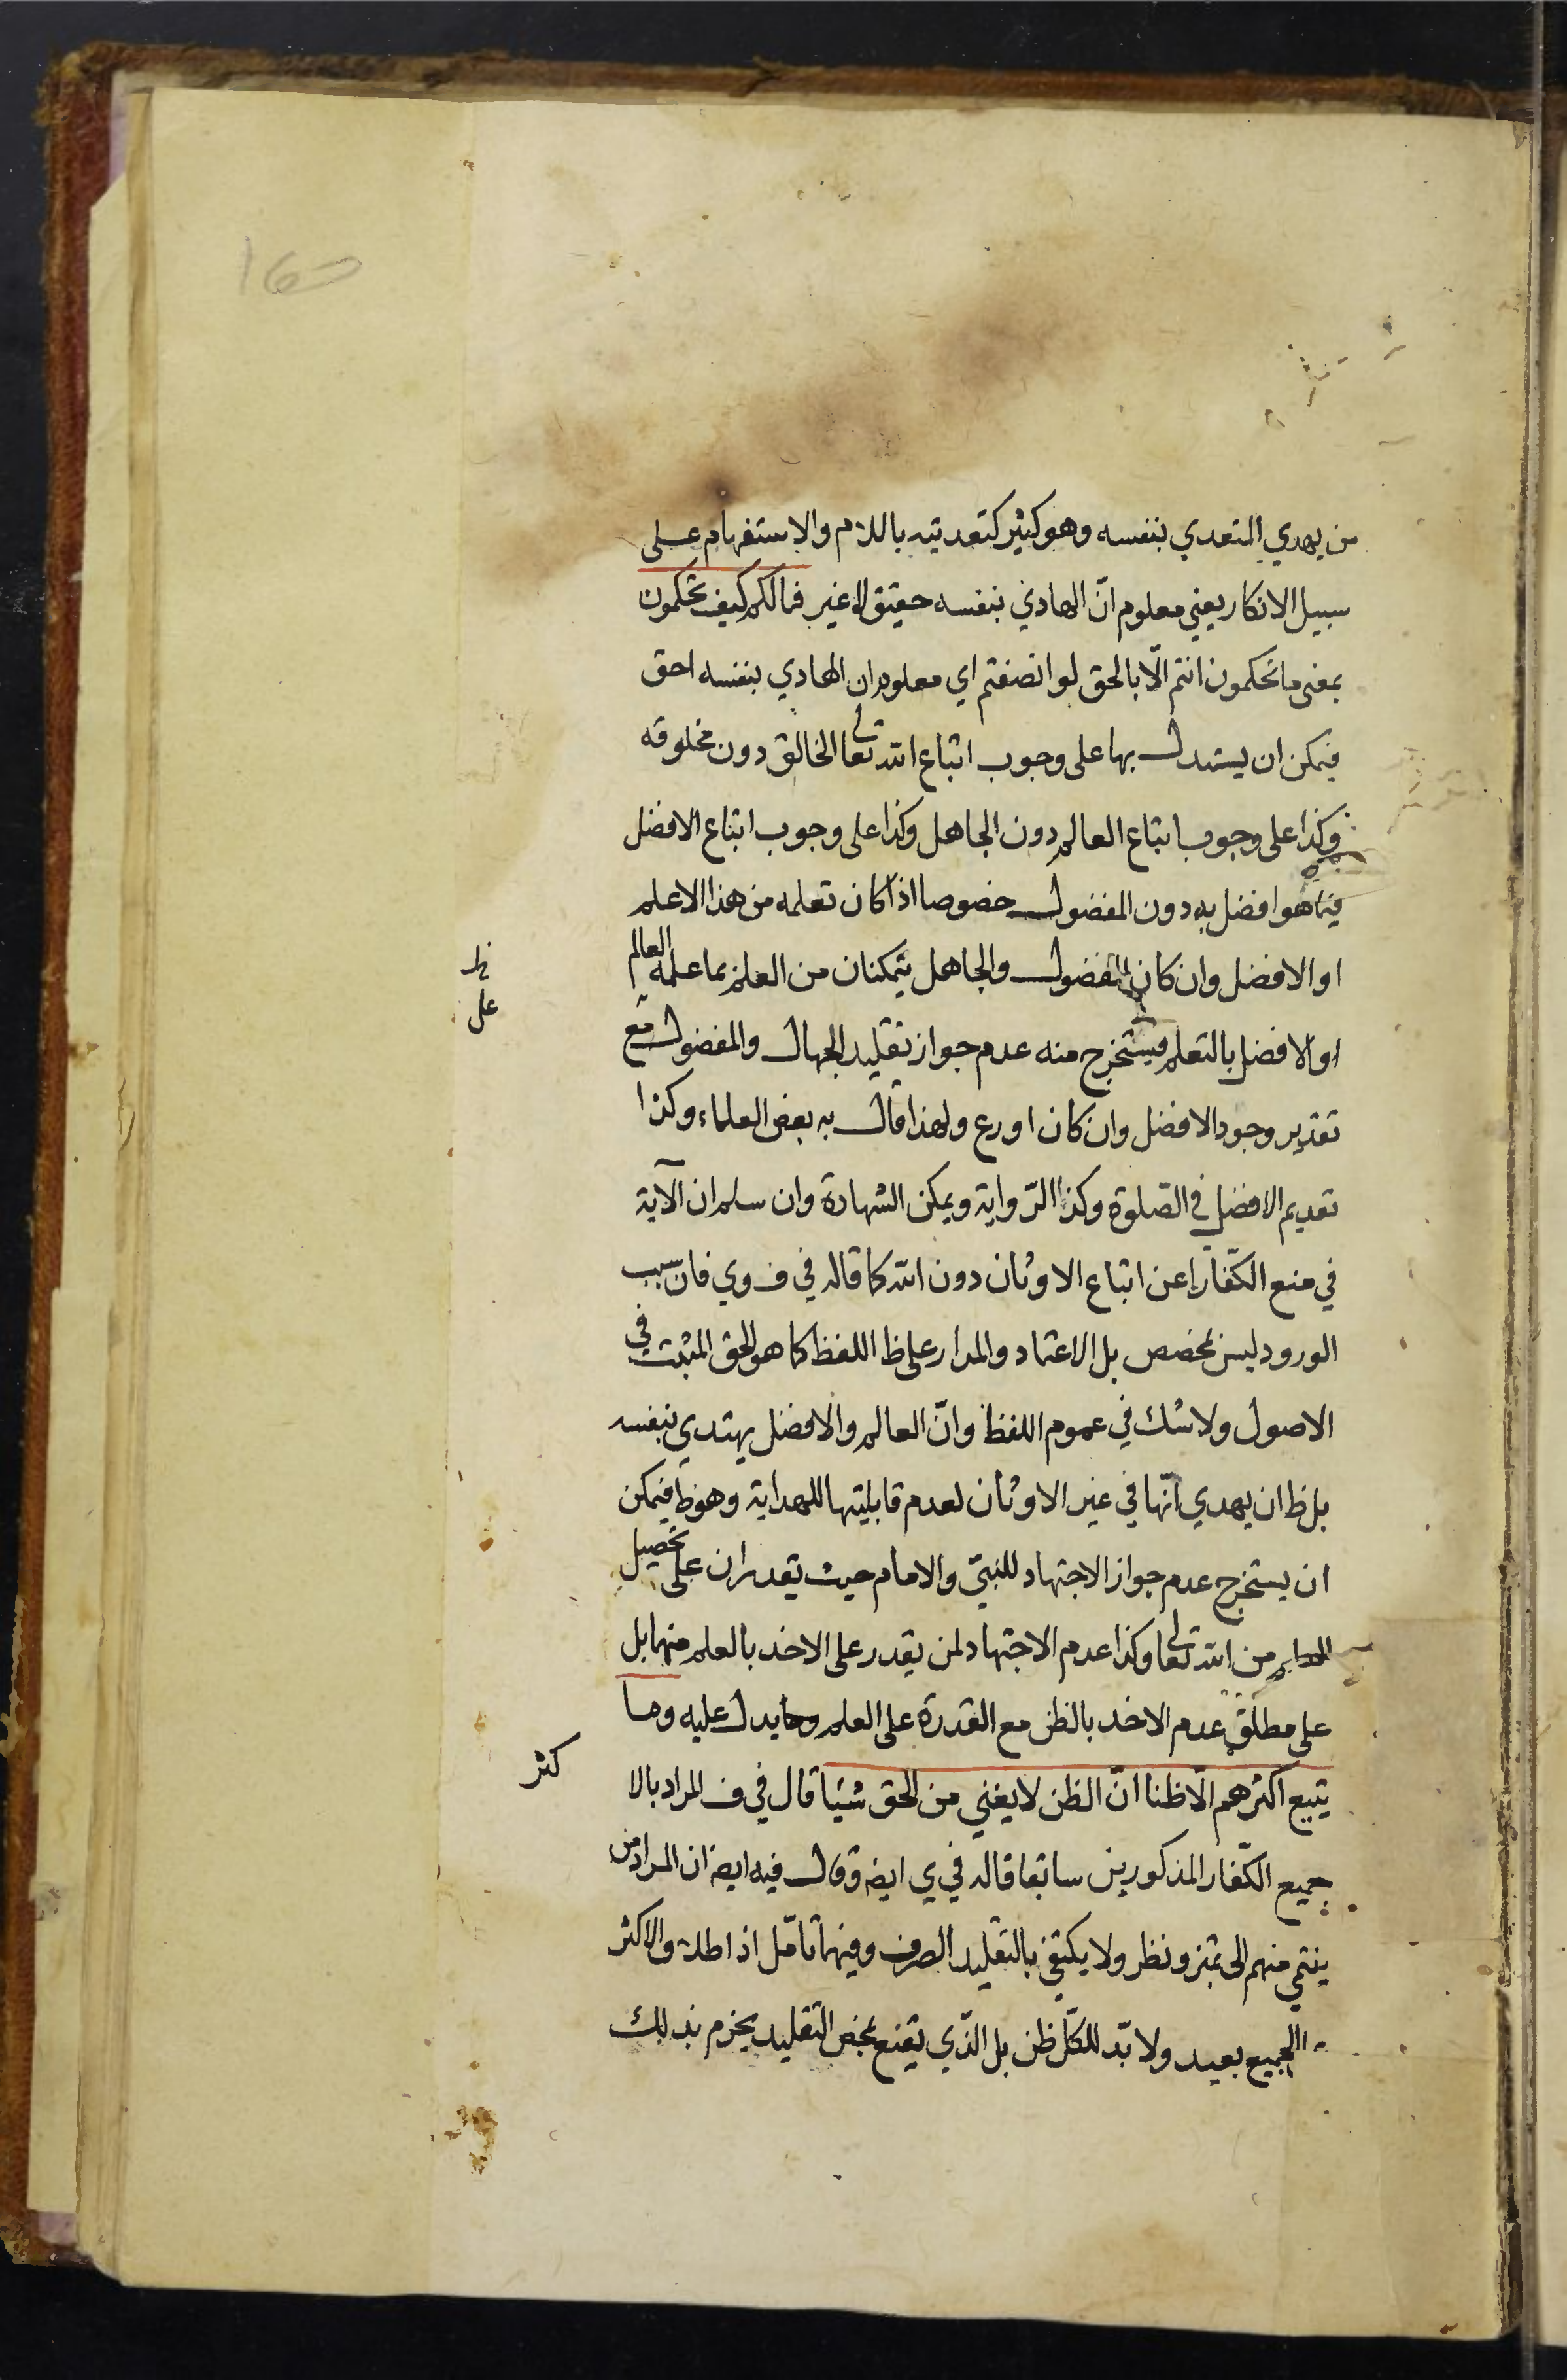 من يهدي المتعدي بنفسه وهو كثير كتعديته باللام والاستفهام على
سبيل الانكار يعني معلوم انّ الهادي بنفسه حقيق لا غير فمالكم كيف تحكمون
بمعنى ما تحكمون انتم الّا بالحق لو انصفتم اي معلوم ان الهادي بنفسه احق
فيمكن ان يستدل بها على وجوب اتباع الله تعالى الخالق دون مخلوقه
وكذا على وجوب اتباع العالم دون الجاهل وكذا على وجوب اتباع الافضل
فيما هو افضل به دون المفضول خصوصا اذا كان تعلمه من هذا الاعلم
او الافضل وان كان المفضول والجاهل يتمكنان من العلم بما علمه العالم
او الافضل بالتعلم فيستخرج منه عدم جواز تقليد الجهال والمفضول مع
تقدير وجود الافضل وان كان اورع ولهذا قال به بعض العلماء وكذا
تقديم الافضل في الصّلوة وكذا الرّواية ويمكن الشهادة وان سلم ان الآية
في منع الكفّار عن اتباع الاوثان دون الله كما قاله في ف وي فان سبب
الورود ليس بمخصص بل الاعتماد والمدار على ظ اللفظ كما هو الحق المثبت في
الاصول ولا شك في عموم اللفظ وانّ العالم والافضل يهتدي بنفسه
بل ظ ان يهدي انّها في غير الاوثان لعدم قابليتها للهداية وهو ظ فيمكن
ان يستخرج عدم جواز الاجتهاد للنبيّ والامام حيث يقدران على تحصيل
العلم من الله تعالى وكذا عدم الاجتهاد لمن يقدر على الاخذ بالعلم منها بل
على مطلق عدم الاخذ بالظن مع القدرة على العلم ومما يدل عليه وما
يتبع اكثرهم الّا ظنا انّ الظن لا يغني من الحق شيئا قال في ف المراد بالا
كثر
جميع الكفّار المذكورين سابقا قاله في ي ايضه وقال فيه ايضه ان المراد من
ينتمي منهم الى تميز ونظر ولا يكتفي بالتقليد الصرف وفيهما تامّل اذ اطلاق الاكثر
الجميع بعيد ولا بدّ للكلّ ظن بل الّذي يقنع بمحض التقليد يجزم بذلك